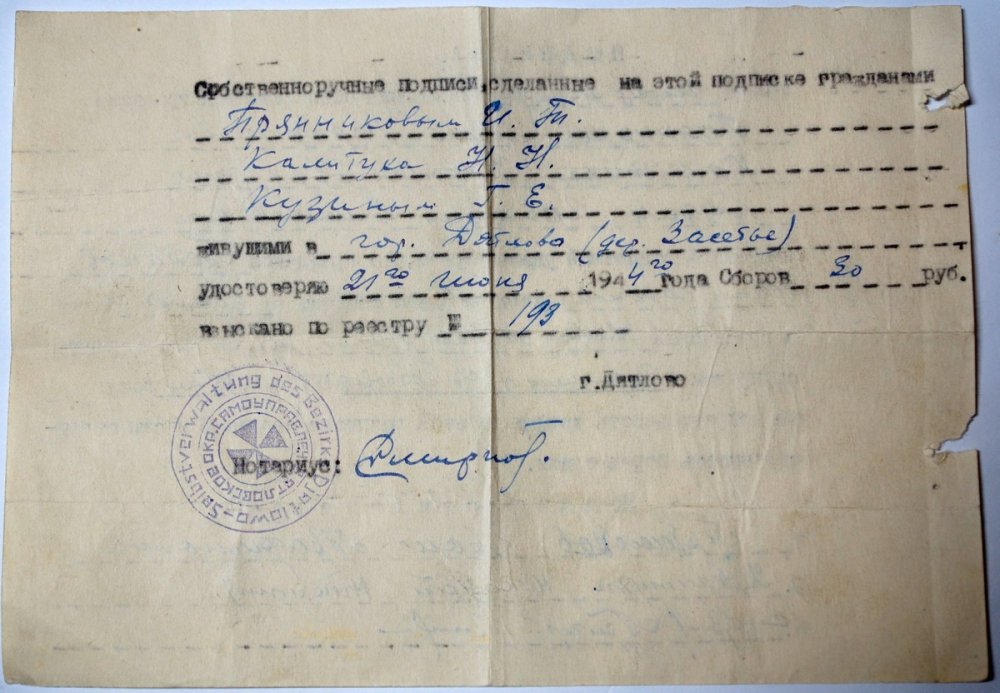 Собственноручные подписи, сделанные на этой подписке гражданами
Прянниковым И. Т.
Калитука Н. Н.
Кузиным Г. Е.
живущими в гор. Дятлова (дер. Засетье)
удостоверяю 21го июня 1944го года Сборов 30 руб.
взыскано по реестру № 193
г.Дятлово
Нотариус: Смирнов.
Selbstverwaltung des Bezirk Djatlowo
ДЯТЛОВСКОЕ ОКР. САМОУПРАВЛЕНИЕ